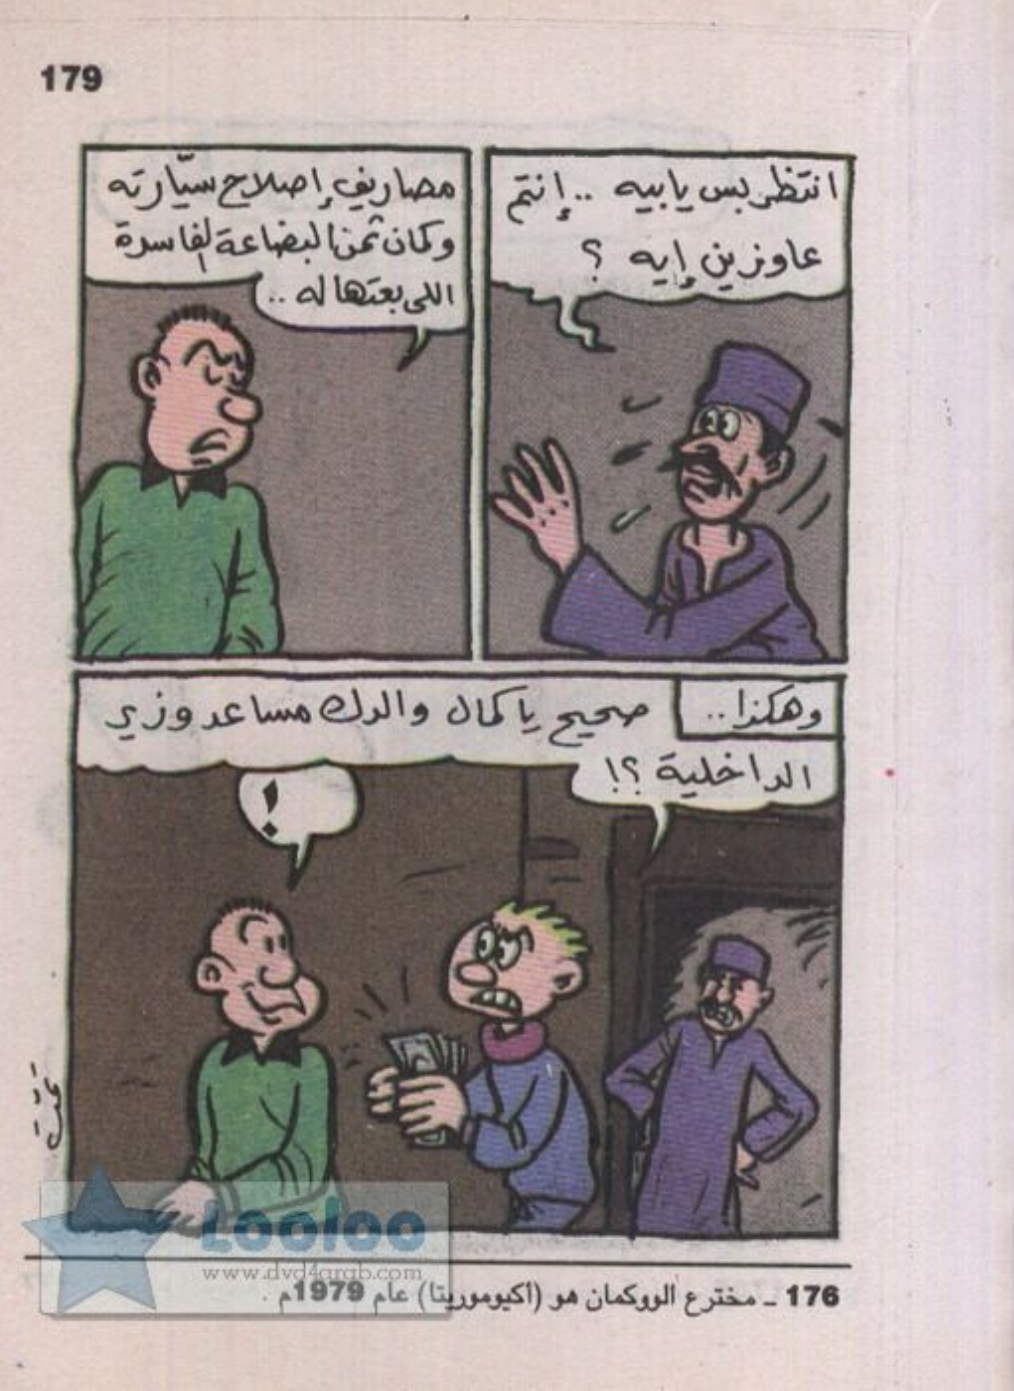 179
انتظر بس يا بيه .. إنتم
عاوزين إيه ؟
مصاريف إصلاح سيّارته
وكمان ثمن البضاعة الفاسدة
اللى بعتها له ..
وهكذا ..
صحيح يا كمال والدك مساعد وزير
الداخلية ؟!
!
Looloo
www.dvd4arab.com
176 ـ مخترع الووكمان هو (أكيوموريتا) عام 1979م .